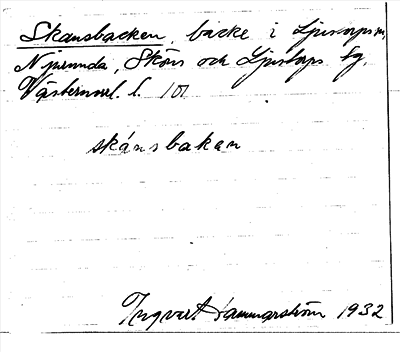 Skansbacken, backe i Ljustorps sn,
Njurunda, Sköns och Ljustorps tg,
Västernorrl. l. 101
skánsbakan
Ingvert Hammarström 1932